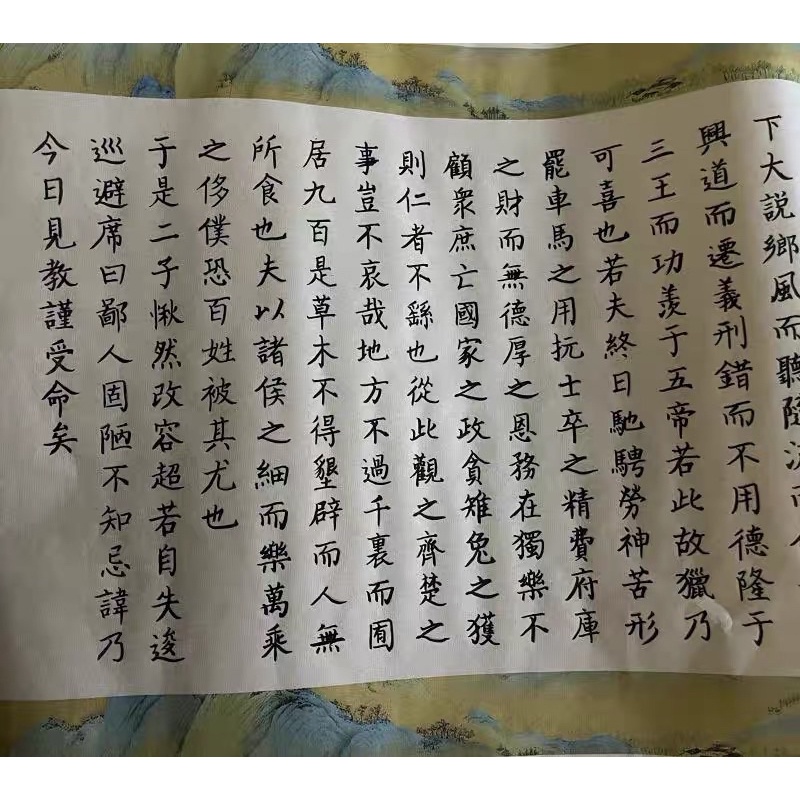 下大説鄉風而聽隨流而
興道而遷義刑錯而不用德隆于
三王而功羨于五帝若此故獵乃
可喜也若夫終日馳騁勞神苦形
罷車馬之用抏士卒之精費府庫
之財而無德厚之恩務在獨樂不
顧衆庶亡國家之政貪雉兔之獲
則仁者不繇也從此觀之齊楚之
事豈不哀哉地方不過千裏而囿
居九百是草木不得墾辟而人無
所食也夫以諸侯之細而樂萬乘
之侈僕恐百姓被其尤也
于是二子愀然改容超若自失逡
巡避席曰鄙人固陋不知忌諱乃
今日見教謹受命矣